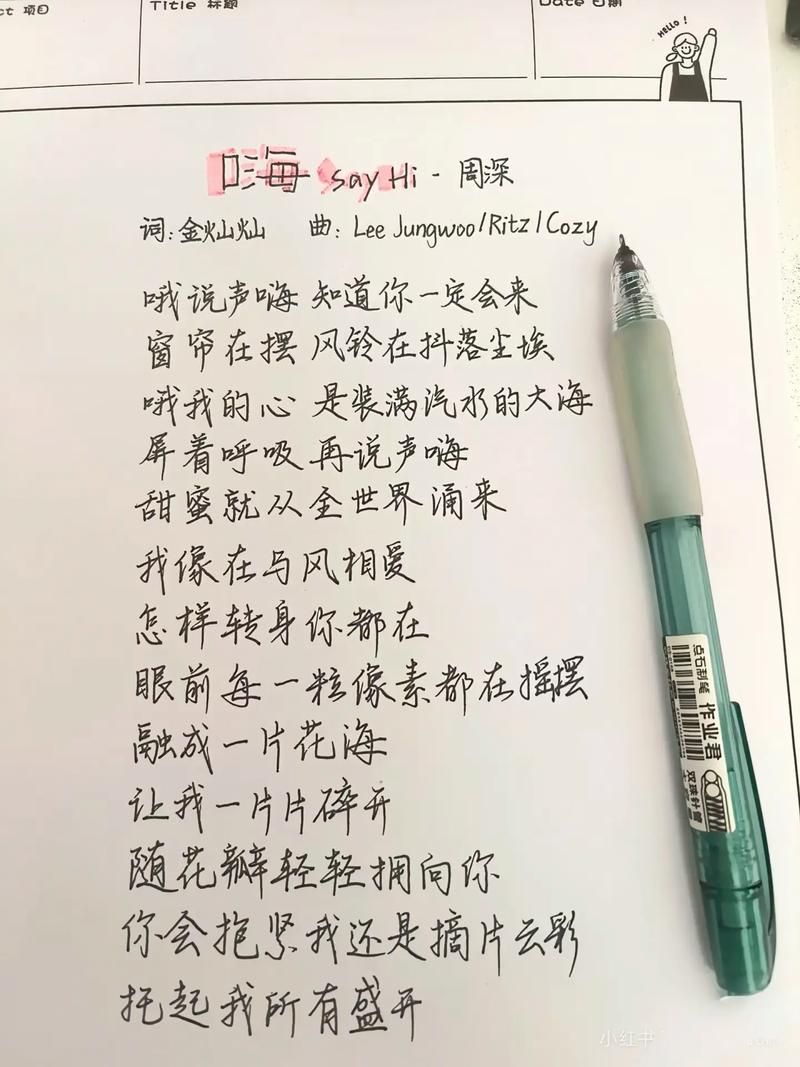 ct 项目
Title 标题
Date 日期
HELLO!
嗨 say Hi - 周深
词:金灿灿 曲: Lee Jungwoo/Ritz/Cozy
哦说声嗨 知道你一定会来
窗帘在摆 风铃在抖落尘埃
哦我的心 是装满汽水的大海
屏着呼吸再说声嗨
甜蜜就从全世界涌来
我像在与风相爱
怎样转身你都在
眼前每一粒像素都在摇摆
融成一片花海
让我一片片碎开
随花瓣轻轻拥向你
你会抱紧我还是摘片云彩
托起我所有盛开
点石制笔
作业君
双珠针管
小红书